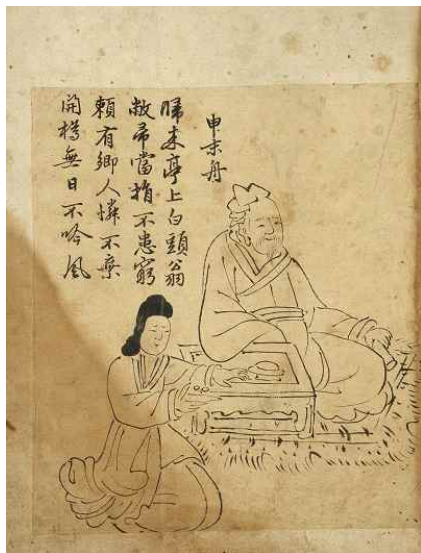 申末舟
歸来亭上白頭翁
敝帚當不患窮
賴有鄉人憐不棄
開樽無日不吟風